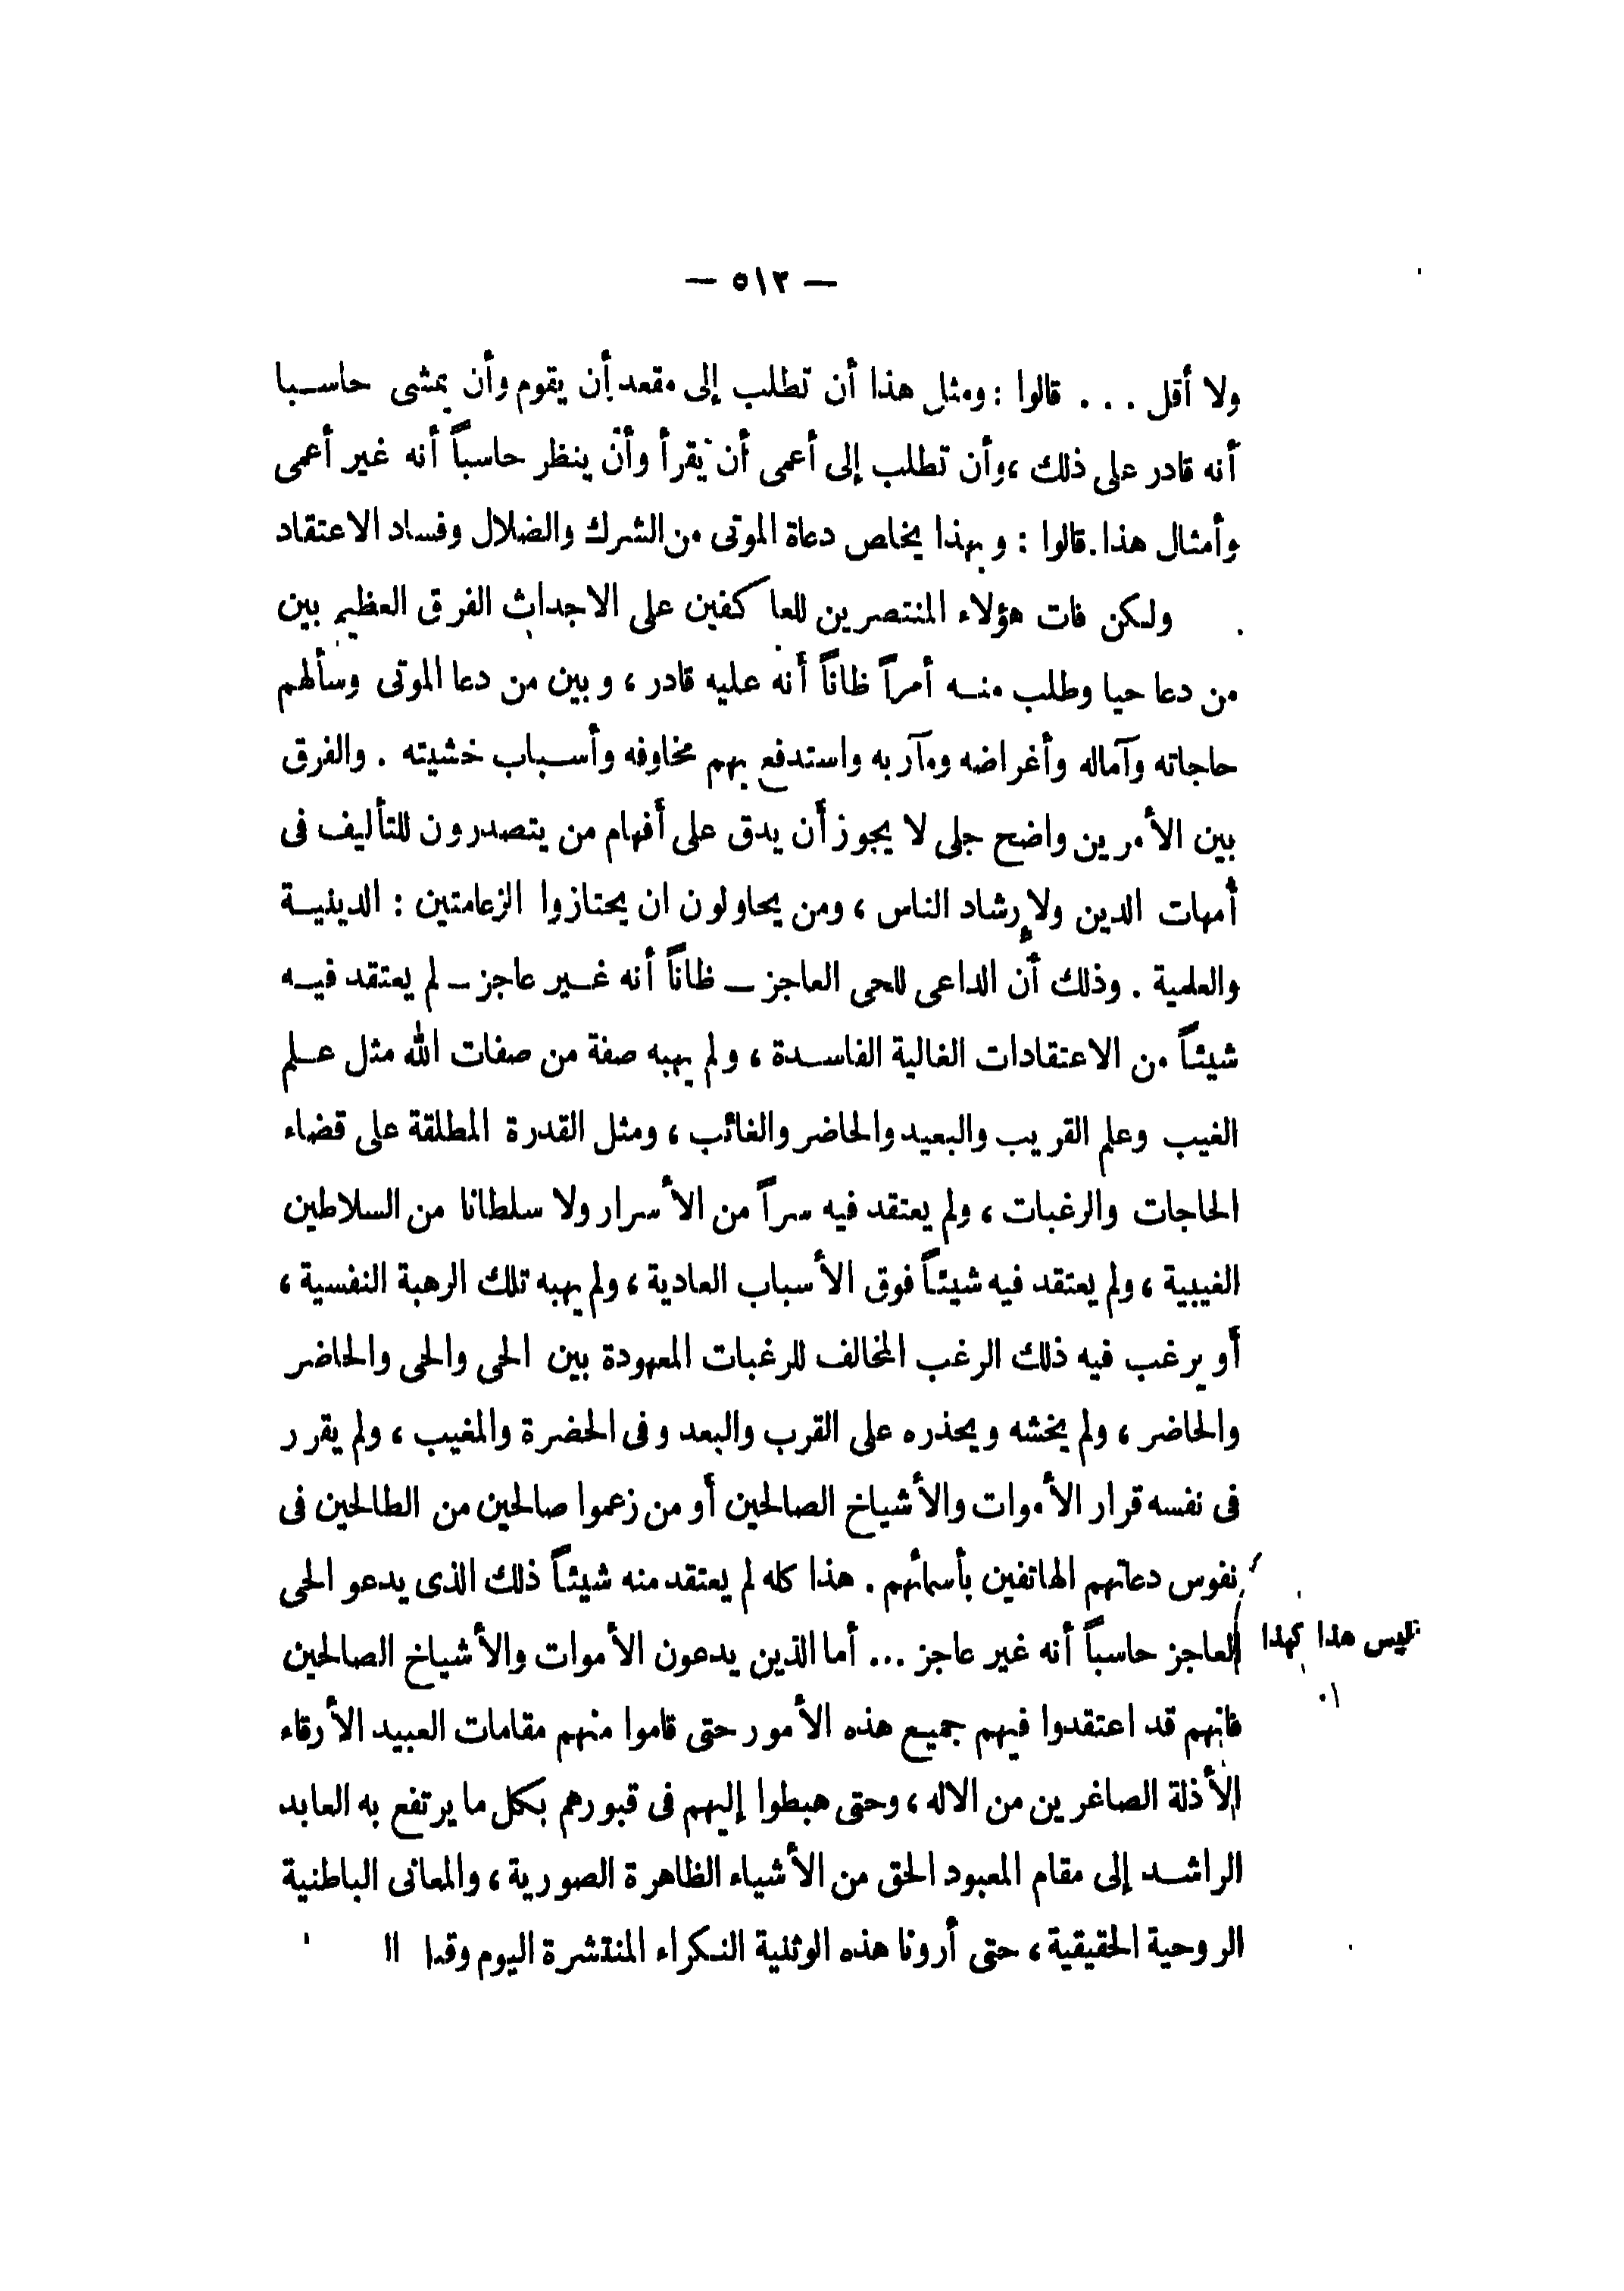 — ٥١٣ —
ولا أقل . . . قالوا : ومثل هذا أن تطلب إلى مقعد أن يقوم وأن يمشى حاسبا
أنه قادر على ذلك ، وأن تطلب إلى أعمى أن يقرأ وأن ينظر حاسباً أنه غير أعمى
وأمثال هذا . قالوا : وبهذا يخلص دعاة الموتى من الشرك والضلال وفساد الاعتقاد
ولكن فات هؤلاء المنتصرين للعاكفين على الاجداث الفرق العظيم بين
من دعا حيا وطلب منه أمراً ظاناً أنه عليه قادر ، وبين من دعا الموتى وسألهم
حاجاته وآماله وأغراضه ومآربه واستدفع بهم مخاوفه وأسباب خشيته . والفرق
بين الأمرين واضح جلى لا يجوز أن يدق على أفهام من يتصدرون للتأليف فى
أمهات الدين ولإرشاد الناس ، ومن يحاولون ان يحتازوا الزعامتين : الدينية
والعلمية . وذلك أن الداعى للحى العاجز ــ ظاناً أنه غير عاجز ــ لم يعتقد فيه
شيئاً من الاعتقادات الغالية الفاسدة ، ولم يهبه صفة من صفات الله مثل علم
الغيب وعلم القريب والبعيد والحاضر والغائب ، ومثل القدرة المطلقة على قضاء
الحاجات والرغبات ، ولم يعتقد فيه سراً من الأسرار ولا سلطانا من السلاطين
الغيبية ، ولم يعتقد فيه شيئاً فوق الأسباب العادية ، ولم يهبه تلك الرهبة النفسية ،
أو يرغب فيه ذلك الرغب المخالف للرغبات المعهودة بين الحى والحى والحاضر
والحاضر ، ولم يخشه ويحذره على القرب والبعد وفى الحضرة والمغيب ، ولم يقرر
فى نفسه قرار الأموات والأشياخ الصالحين أو من زعموا صالحين من الطالحين فى
نفوس دعاتهم الهاتفين بأسمائهم . هذا كله لم يعتقد منه شيئاً ذلك الذى يدعو الحى
ليس هذا كهذا
العاجز حاسباً أنه غير عاجز ... أما الذين يدعون الأموات والأشياخ الصالحين
فانهم قد اعتقدوا فيهم جميع هذه الأمور حتى قاموا منهم مقامات العبيد الأرقاء
الأذلة الصاغرين من الاله ، وحتى هبطوا إليهم فى قبورهم بكل ما يرتفع به العابد
الراشد إلى مقام المعبود الحق من الأشياء الظاهرة الصورية ، والمعانى الباطنية
الروحية الحقيقية ، حتى أرونا هذه الوثنية النكراء المنتشرة اليوم وقدا !!